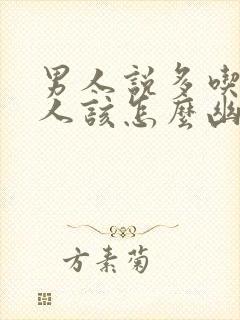 男人說多喫
人該怎麼幽
方素菊